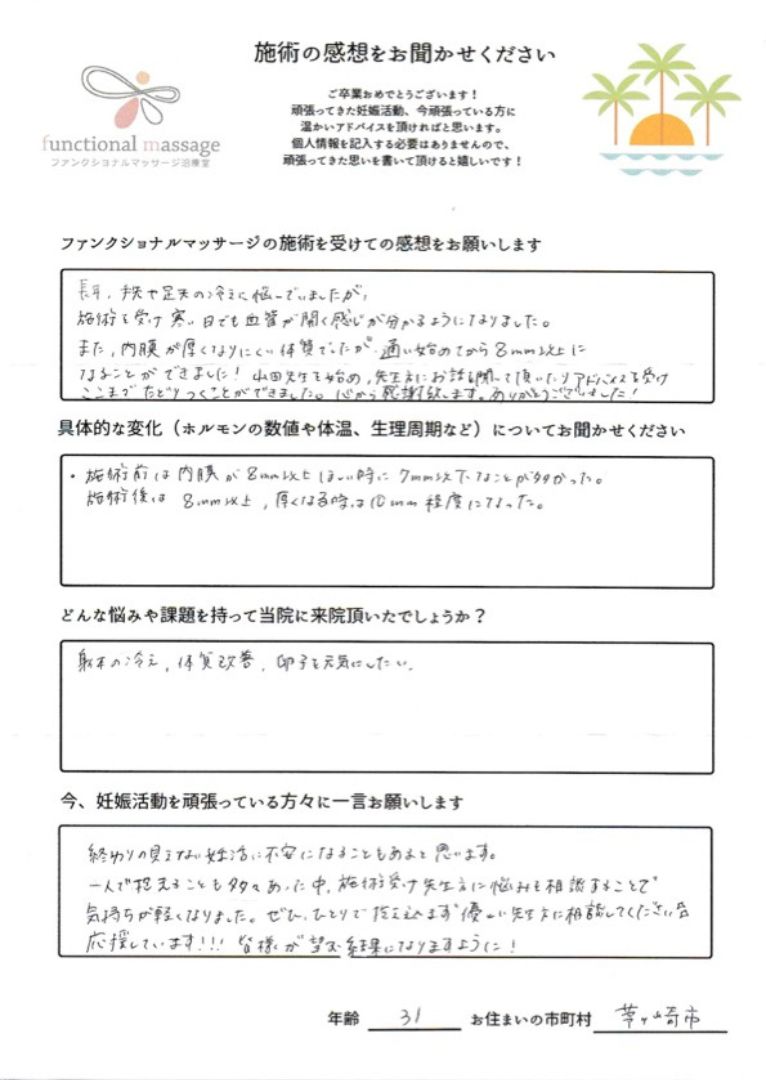 施術の感想をお聞かせください
functional massage
ファンクショナルマッサージ治療室
ご卒業おめでとうございます！
頑張ってきた妊娠活動、今頑張っている方に
温かいアドバイスを頂ければと思います。
個人情報を記入する必要はありませんので、
頑張ってきた思いを書いて頂けると嬉しいです！
ファンクショナルマッサージの施術を受けての感想をお願いします
長年、手先や足先の冷えに悩んでいましたが、
施術を受け寒い日でも血管が開く感じが分かるようになりました。
また、内膜が厚くなりにくい体質でしたが、通い始めてから8mm以上に
なることができました！山田先生を始め、先生方にお話を聞いて頂いたりアドバイスを受け
ここまでたどりつくことができました。心から感謝致します。ありがとうございました！
具体的な変化（ホルモンの数値や体温、生理周期など）についてお聞かせください
・施術前は内膜が8mm以上ほしい時に7mm以下なことが多かった。
施術後は 8mm以上，厚くなる時は10mm程度になった。
どんな悩みや課題を持って当院に来院頂いたでしょうか？
身体の冷え，体質改善，卵子を元気にしたい。
今、妊娠活動を頑張っている方々に一言お願いします
終わりの見えない妊活に不安になることもあると思います。
一人で抱えることも多々あった中，施術受け先生方に悩みを相談することで
気持ちが軽くなりました。ぜひ、ひとりで抱え込まず優しい先生方に相談してください
応援しています!!! 皆様が望む結果になりますように！
年齢 31 お住まいの市町村 茅ヶ崎市